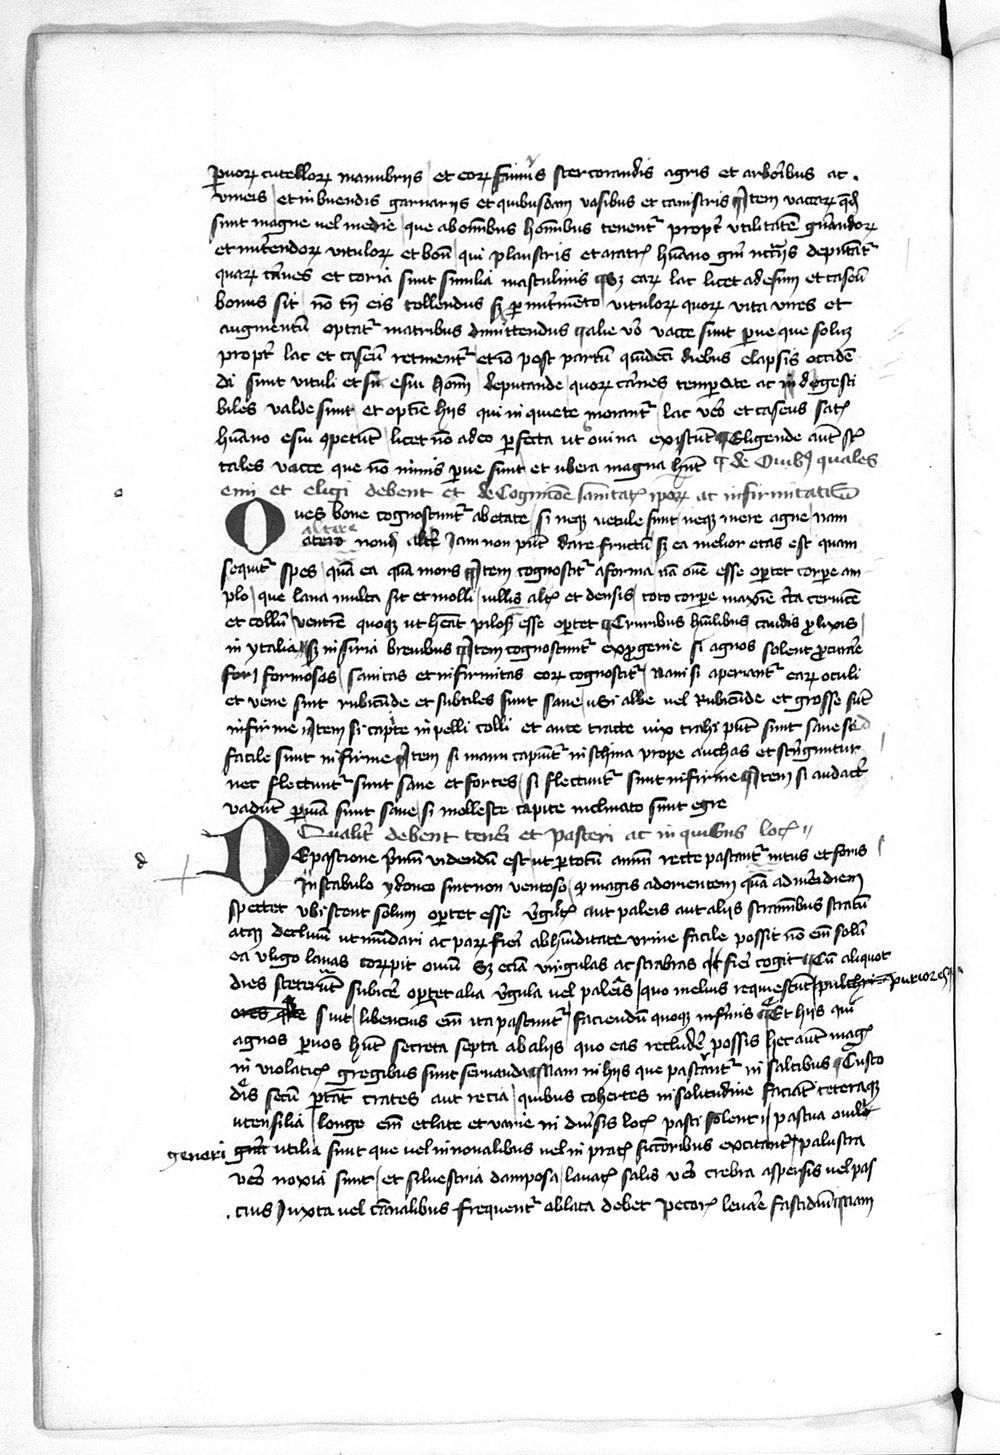 paruorum cutellorum manubriis et eorum fimus stercorandis agris et arboribus ac
vineis et inbuendis garnariis et quibusdam vasibus et canistris Item vaccarum quedam
sunt magne uel medie que ab omnibus hominibus tenentur propter utilitatem generandorum
et nutriendorum vitulorum et boum qui plaustris et aratris humano generi necessariis deputantur
quarum carnes et coria sunt similia masculinis Sed earum lac licet ad esum et caseum
bonus sit non tamen eis tollendus sed pro nutrimento vitulorum quorum vita vires et
augmentum optatur matribus dimittendus alie vero vacce sunt parue que solum
propter lac et caseum retinentur et ideo post partum quindecim diebus elapsis occiden
di sunt vituli et sunt esui hominum deputande quorum carnes temperate ac digesti
biles valde sunt et optime hiis qui in quiete morantur lac vero et caseus satis
humano esui competunt licet non adeo perfecta ut ouina existunt Eligende autem sunt
tales vacce que non nimis parue sunt et ubera magna habent de Ouibus quales
emi et eligi debent et de Cognicione sanitatis ipsarum ac infirmitatum
Oues bone cognoscuntur ab etate si neque vetule sunt neque mere agne nam
altere nondum altere Iam non possunt dare fructum sed ea melior etas est quam
sequitur spes quam ea quam mors Item cognoscitur a forma nam ouem esse oportet corpore am
plo que lana multa sit et molli villis altis et densis toto corpore maxime circa ceruicem
et collum ventrem quoque ut habeat pilosum esse oportet Cruribus humilibus caudis prolixis
in ytalia sed in siria breuibus Item cognoscuntur ex progenie si agnos solent procreare
formosos sanitas et infirmitas eorum cognoscitur Nam si aperiantur earum oculi
et vene sint rubicunde et subtiles sunt sane Si albe vel Rubicunde et grosse sunt
infirme Item si capte in pelli colli et ante tracte vix trahi possunt sunt sane sed
facile sunt infirme Item si manu capiuntur in schina prope anchas et stringuntur
nec flectuntur sunt sane et fortes si flectuntur sunt infirme Item si audacter
vadunt per viam sunt sane si moleste capite inclinato sunt egre
Qualiter debent teneri et pasceri ac in quibus locis
De pastione primum videndum est ut per totum annum recte pascantur intus et foris
In stabulo ydoneo sint non ventoso quod magis ad orientem quam ad meridiem
spectet Vbi stent solum oportet esse virgultis aut paleis aut aliis straminibus stratum
atque decliuum ut mundari ac parum fieri ab humiditate vrine facile possit non enim solum
ea vligo lanas corrumpit ouium Sed eciam vngulas ac scabras fieri cogit Cum aliquot
dies steterunt subicere oportet alia virgula vel paleas quo melius requiescunt puriores
sunt libencius enim ita pascuntur faciendum quoque infirmis Et hiis qui
agnos paruos habent secreta septa ab aliis quo eas recludere possis hec autem magis
in violaticis gregibus sunt seruanda Nam in hiis que pascantur in saltibus Custo
des secum portant crates aut recia quibus cohertes in solitudine faciant ceteraque
utensilia longe enim et late et varie in diuersis locis pasci solent pascua ouili
generi utilia sunt que vel in noualibus vel in pratis siccioribus excitantur palustria
vero noxia sunt et siluestria dampnosa lanatis salis vero crebra aspersis vel pas
cuis Iuxta vel canalibus frequenter oblata debet pecoris leuare fastidium Nam